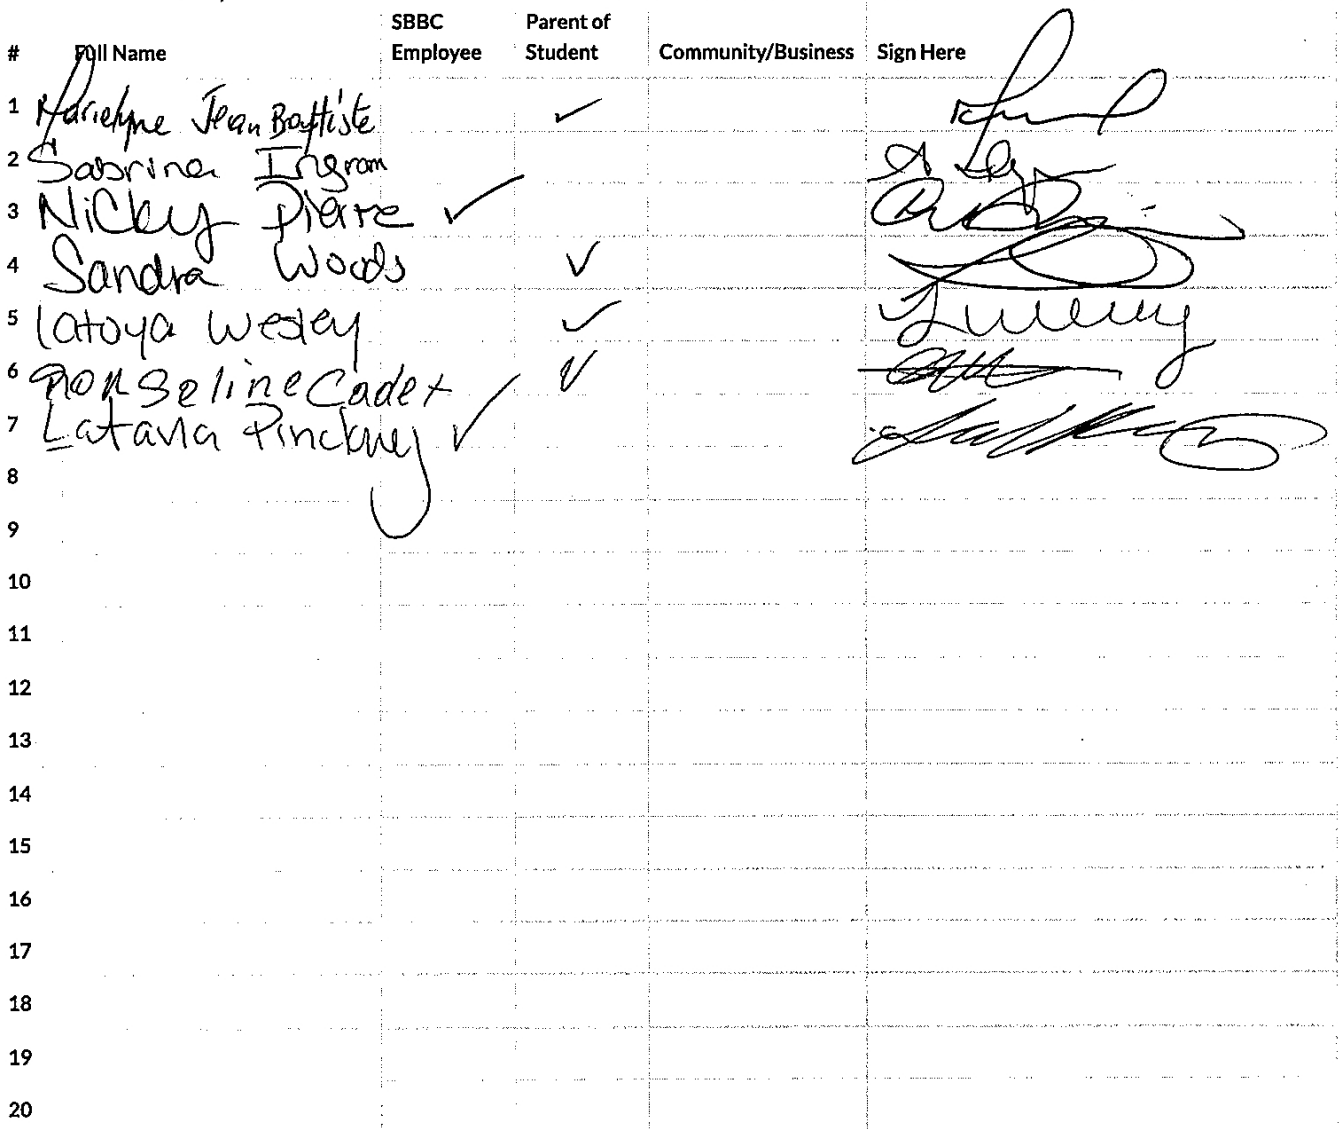 SBBC Parent of
# Full Name Employee Student Community/Business Sign Here
1 Marielyne Jean Baptiste ✓
2 Sabrina Ingram
3 Nicky Pierre ✓
4 Sandra Woods ✓
5 latoya Wesley ✓
6 Ronseline Cadet ✓
7 Latavia Pinckney ✓
8
9
10
11
12
13
14
15
16
17
18
19
20